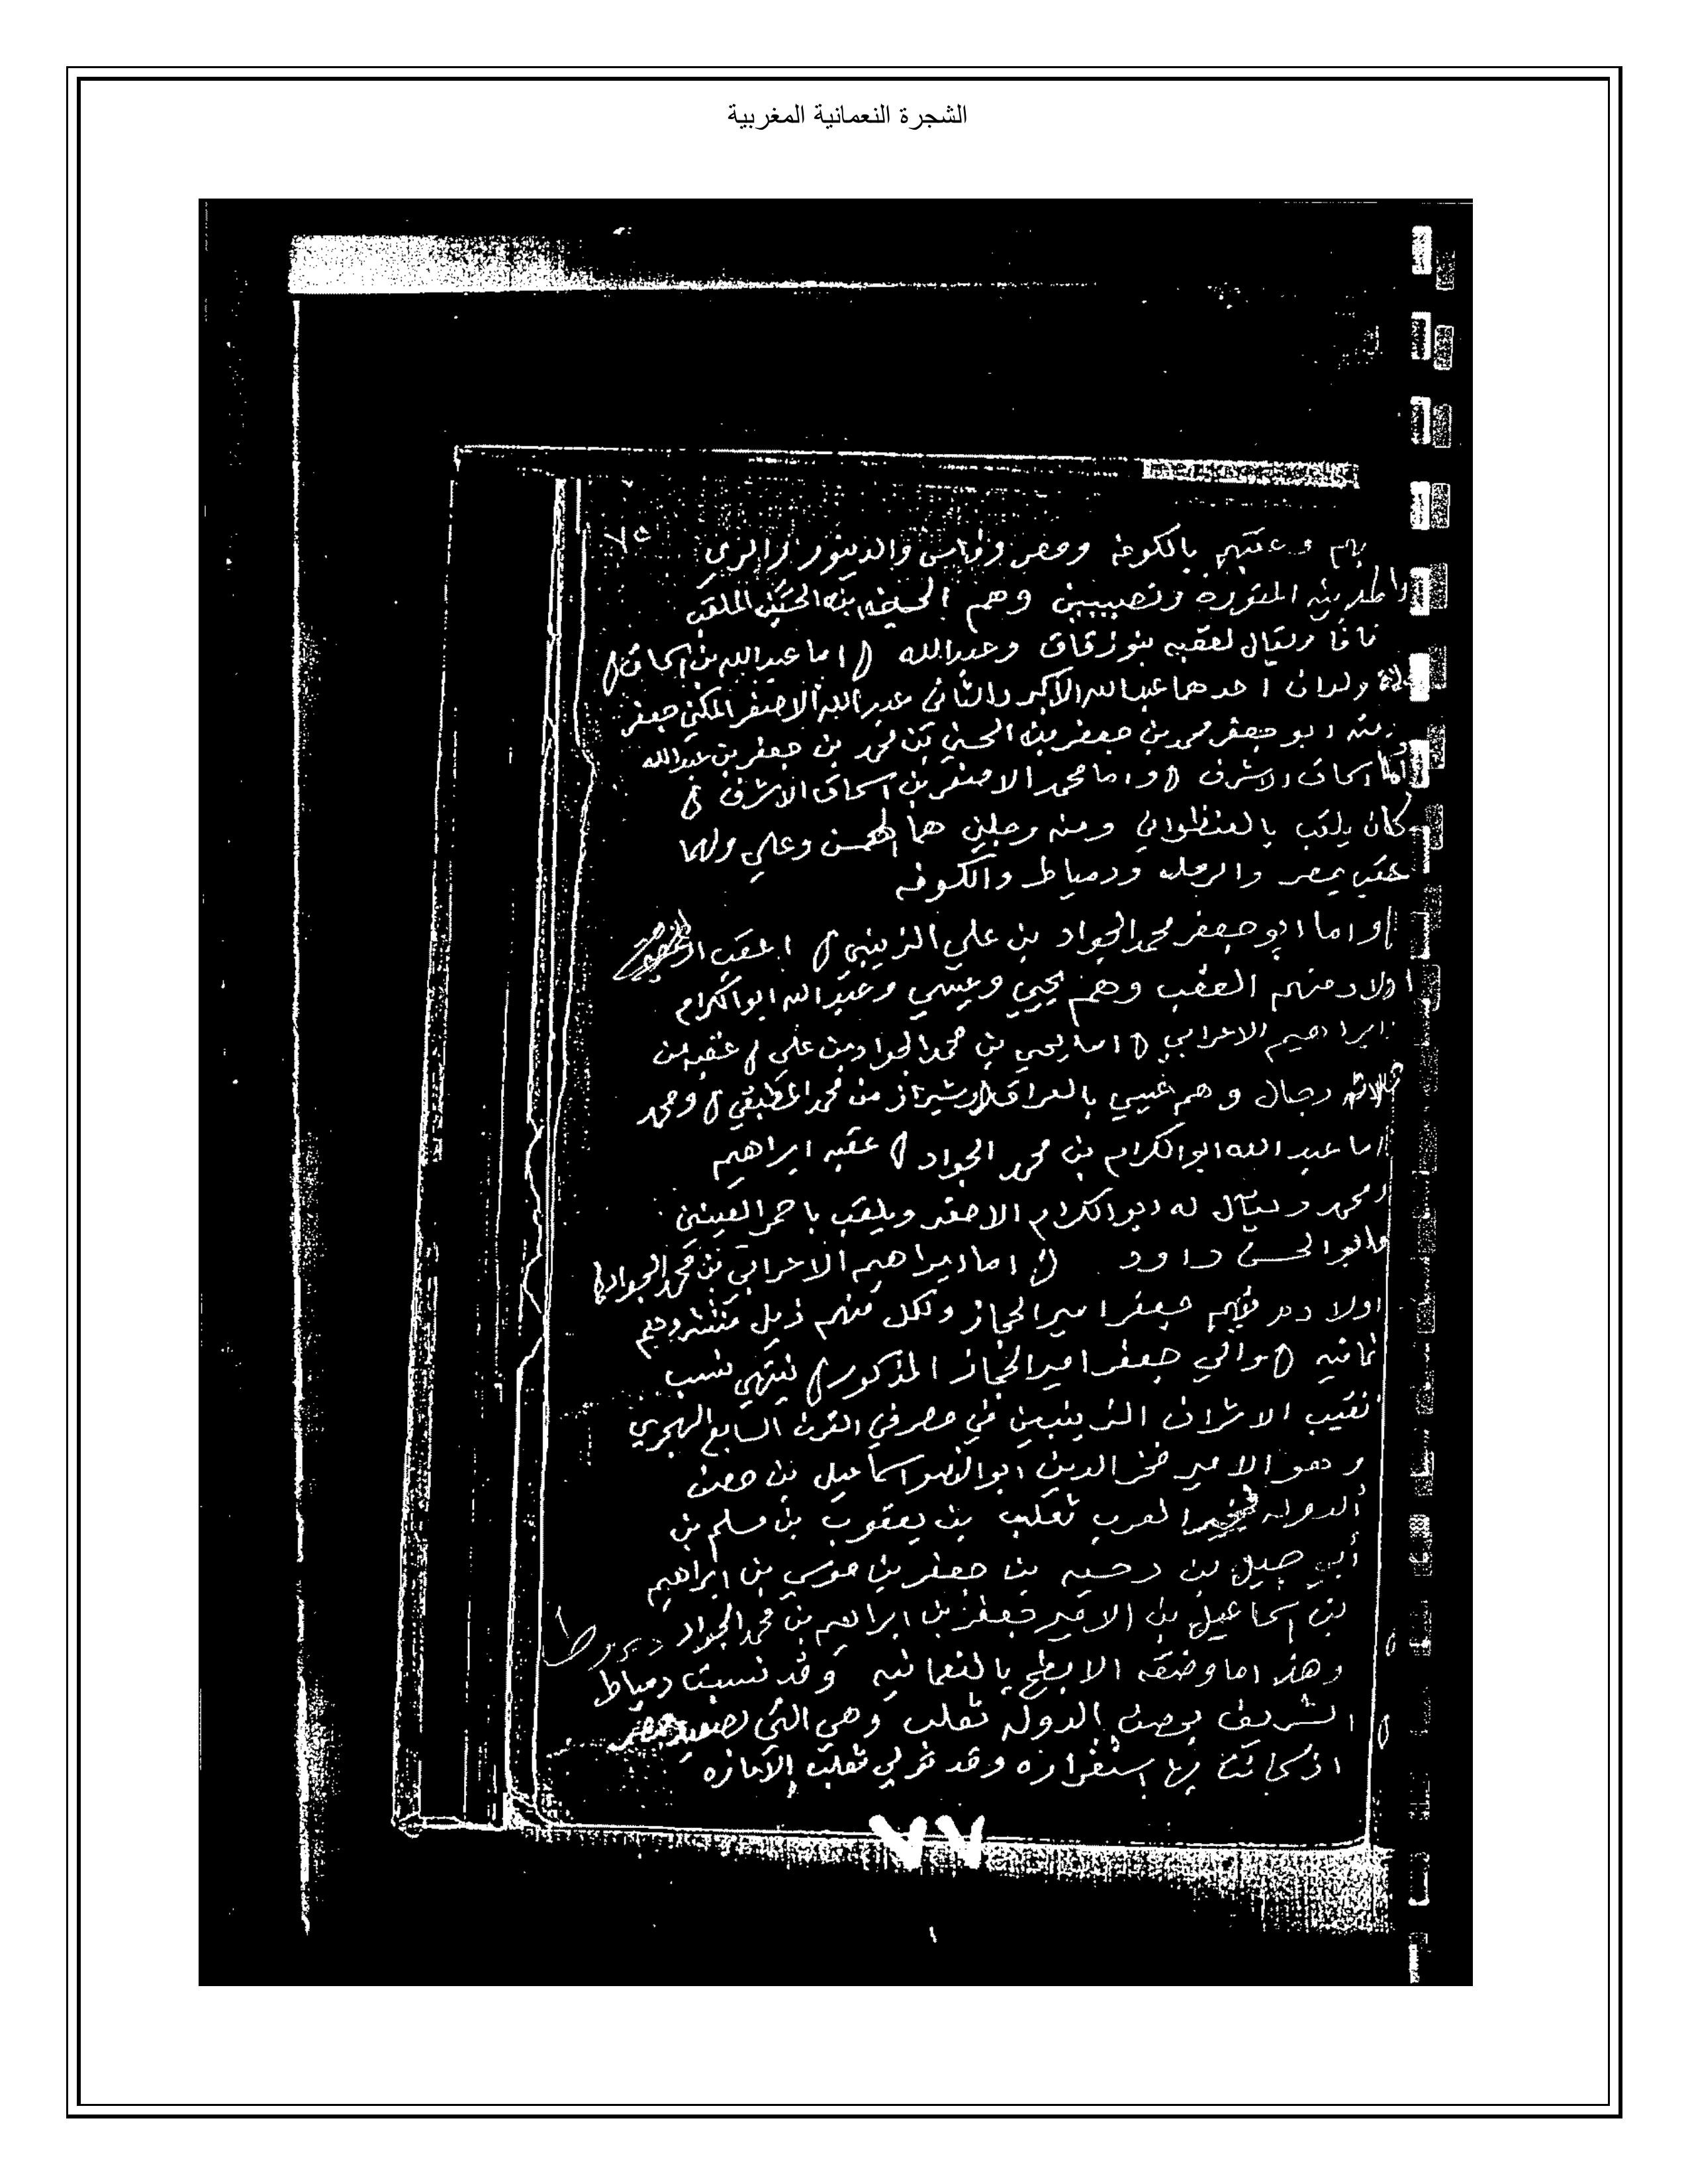 الشجرة النعمانية المغربية
٧٥
بهم وعقبهم بالكوفه ومصر وفاس والدينور والري
والمدينه المنوره ونصيبين وهم الحسن بن الحسين الملقب
ويقال لعقبه بنو زقاق وعبدالله () اما عبدالله بن اسحاق ()
ولدان احدهما عبدالله الاكبر والثاني عبدالله الاصغر المكني جعفر
منه ابو جعفر محمد بن جعفر بن الحسن بن محمد بن جعفر بن عبدالله
اسحاق الاشرف () واما محمد الاصغر بن اسحاق الاشرف ()
كان يلقب بالعنظواني ومنه رجلين هما الحسن وعلي ولهما
عقب بمصر والرمله ودمياط والكوفه
واما ابو جعفر محمد الجواد بن علي الزينبي () اعقب
اولاد منهم العقب وهم يحيي وعيسي وعبدالله ابو الكرام
ابراهيم الاعرابي () اما يحيي بن محمد الجواد بن علي () عقبه من
ثلاثه رجال وهم عيسي بالعراق وشيراز من محمد المطبقي () ومحمد
اما عبدالله ابو الكرام بن محمد الجواد () عقبه ابراهيم
ومحمد ويقال له ابو الكرام الاصغر ويلقب باحمر العينين
وابو الحسن داود () اما ابراهيم الاعرابي بن محمد الجواد ()
اولاده منهم جعفر امير الحجاز ولكل منهم ذيل منتشر وهم
ثمانيه () والي جعفر امير الحجاز المذكور () ينتهي نسب
نقيب الاشراف الزينبين في مصر في القرن السابع الهجري
وهو الامير فخر الدين ابو النصر اسماعيل بن حصن
الدوله العرب ثعلب بن يعقوب بن مسلم بن
أبي جميل بن دحيه بن جعفر بن موسي بن ابراهيم
بن اسماعيل بن الامير جعفر بن ابراهيم بن محمد الجواد
وهذا ما وضعه الابطح بالنعمانيه وقد نسبت دمياط
الشريف بحصن الدوله ثعلب وهي التي
اذ كانت بها استقراره وقد تولي ثعلب الاماره
٧٧
١